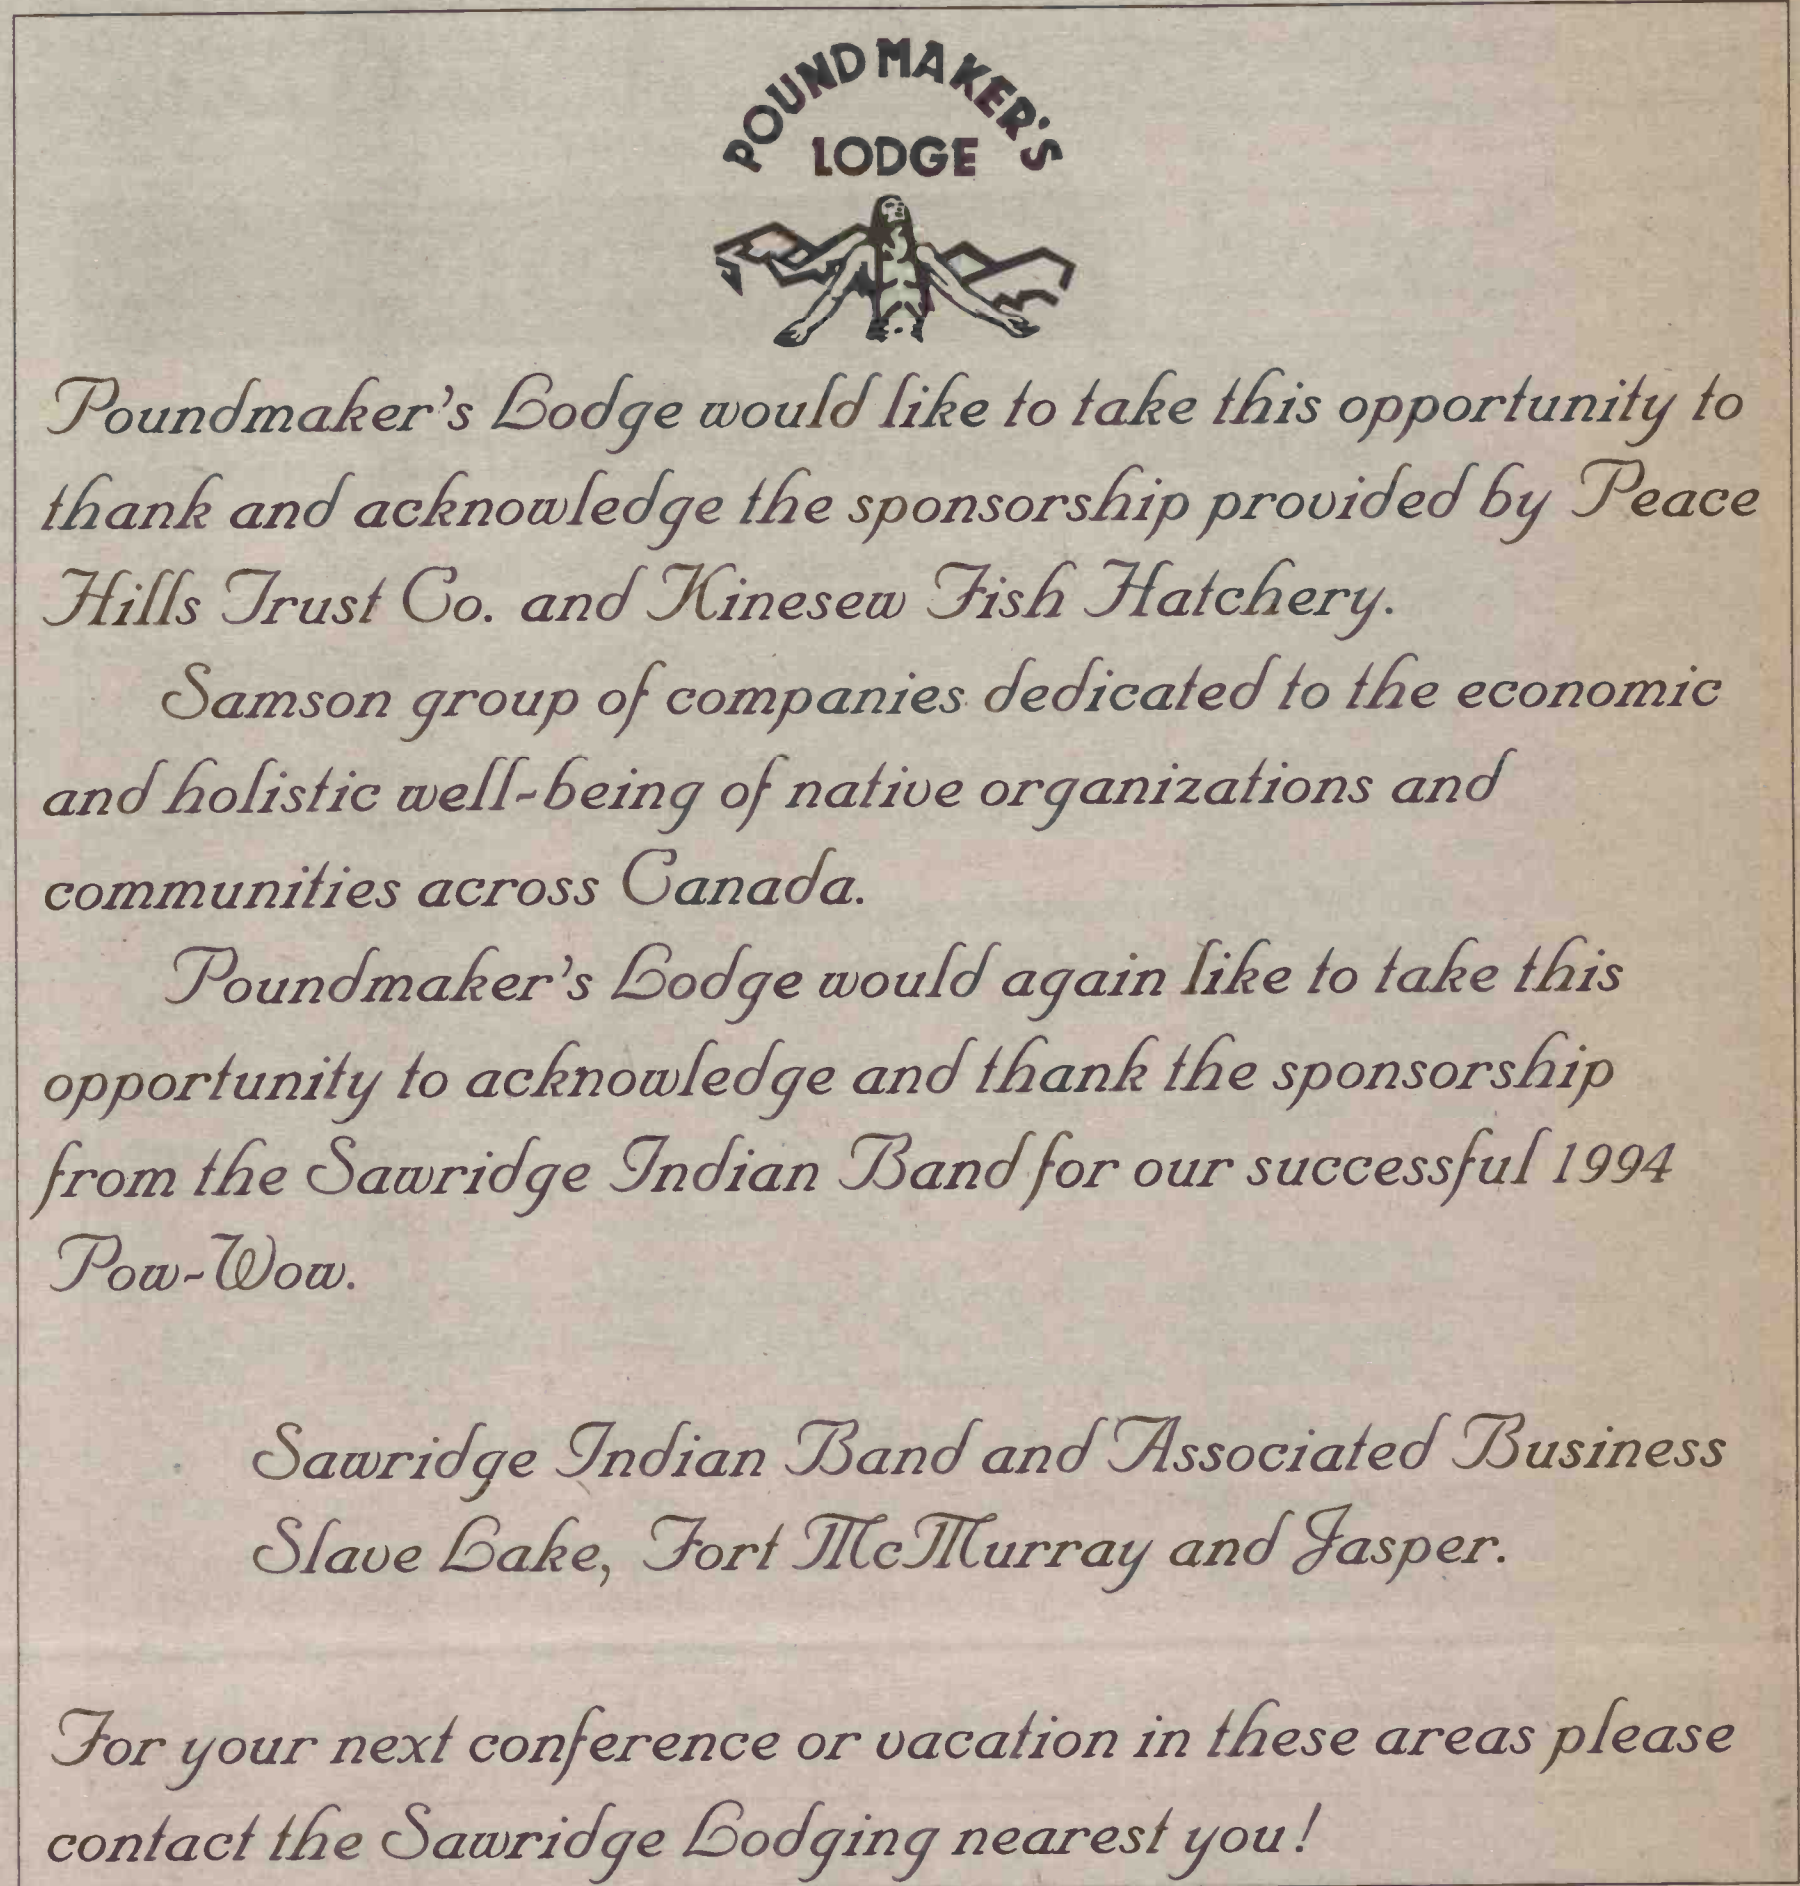 POUNDMAKER'S
LODGE
Poundmaker's Lodge would like to take this opportunity to
thank and acknowledge the sponsorship provided by Peace
Hills Trust Co. and Kinesew Fish Hatchery.
Samson group of companies dedicated to the economic
and holistic well-being of native organizations and
communities across Canada.
Poundmaker's Lodge would again like to take this
opportunity to acknowledge and thank the sponsorship
from the Sawridge Indian Band for our successful 1994
Pow-Wow.
Sawridge Indian Band and Associated Business
Slave Lake, Fort McMurray and Jasper.
For your next conference or vacation in these areas please
contact the Sawridge Lodging nearest you!